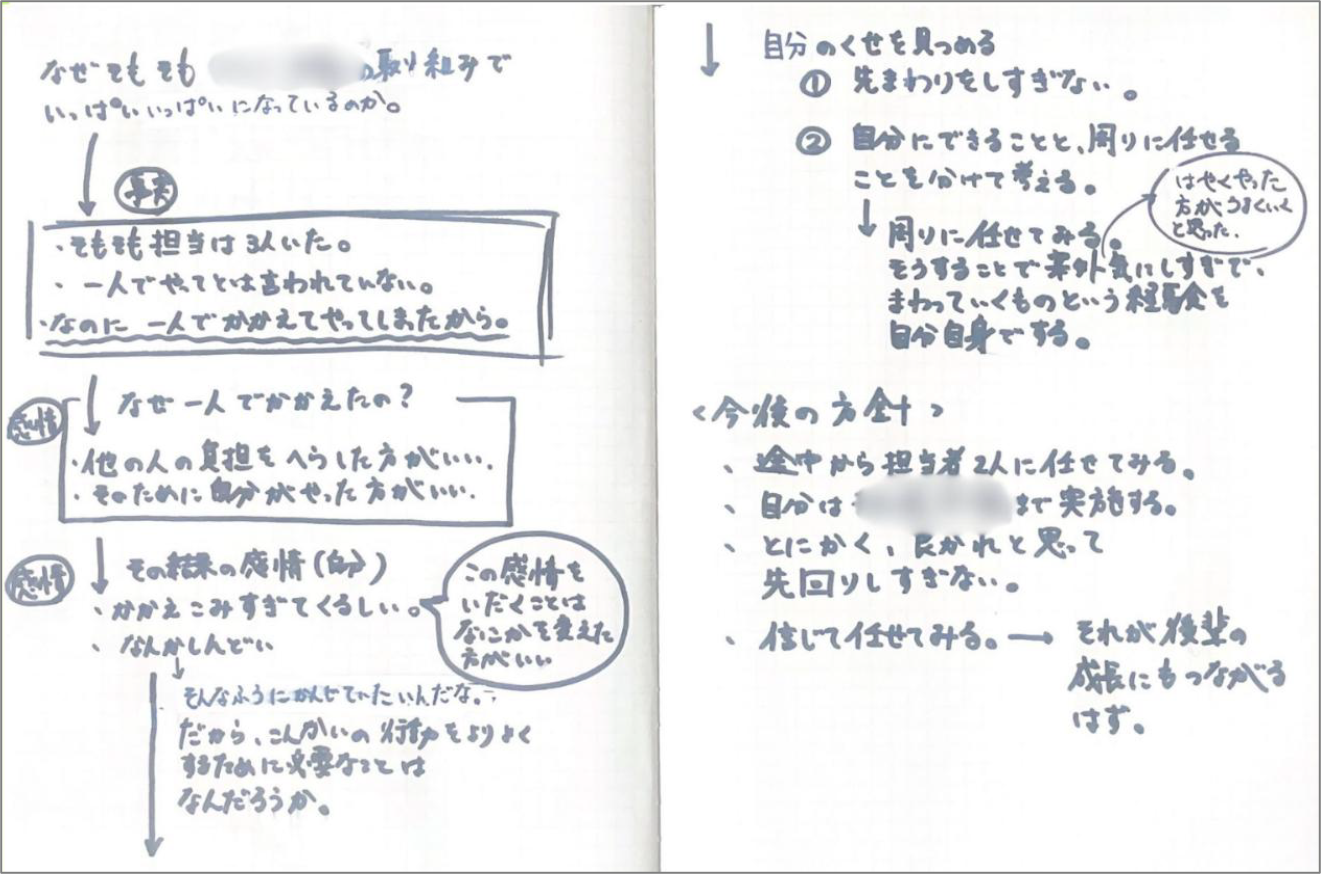 なぜそもそも
の取り組みで
いっぱいいっぱいになっているのか。
事実
・そもそも担当は3人いた。
・一人でやってとは言われていない。
・なのに一人でかかえてやってしまったから。
なぜ一人でかかえたの？
感情
・他の人の負担をへらした方がいい.
・そのために自分がやった方がいい.
感情
その結果の感情(自分)
・かかえこみすぎてくるしい。
・なんかしんどい
この感情を
いだくことは
なにかを変えた
方がいい
そんなふうにかんじていたいんだな。
だから、こんかいの行動をよりよく
するために必要なことは
なんだろうか。
自分のくせを見つめる
① 先まわりをしすぎない。
② 自分にできることと、周りに任せる
ことを分けて考える。
はやくやった
方がうまくいく
と思った.
周りに任せてみる。
そうすることで案外気にしすぎで、
まわっていくものという経験を
自分自身でする。
<今後の方針>
、途中から担当者2人に任せてみる。
、自分は
まで実施する。
、とにかく、良かれと思って
先回りしすぎない。
、信じて任せてみる。→ それが後輩の
成長にもつながる
はず。